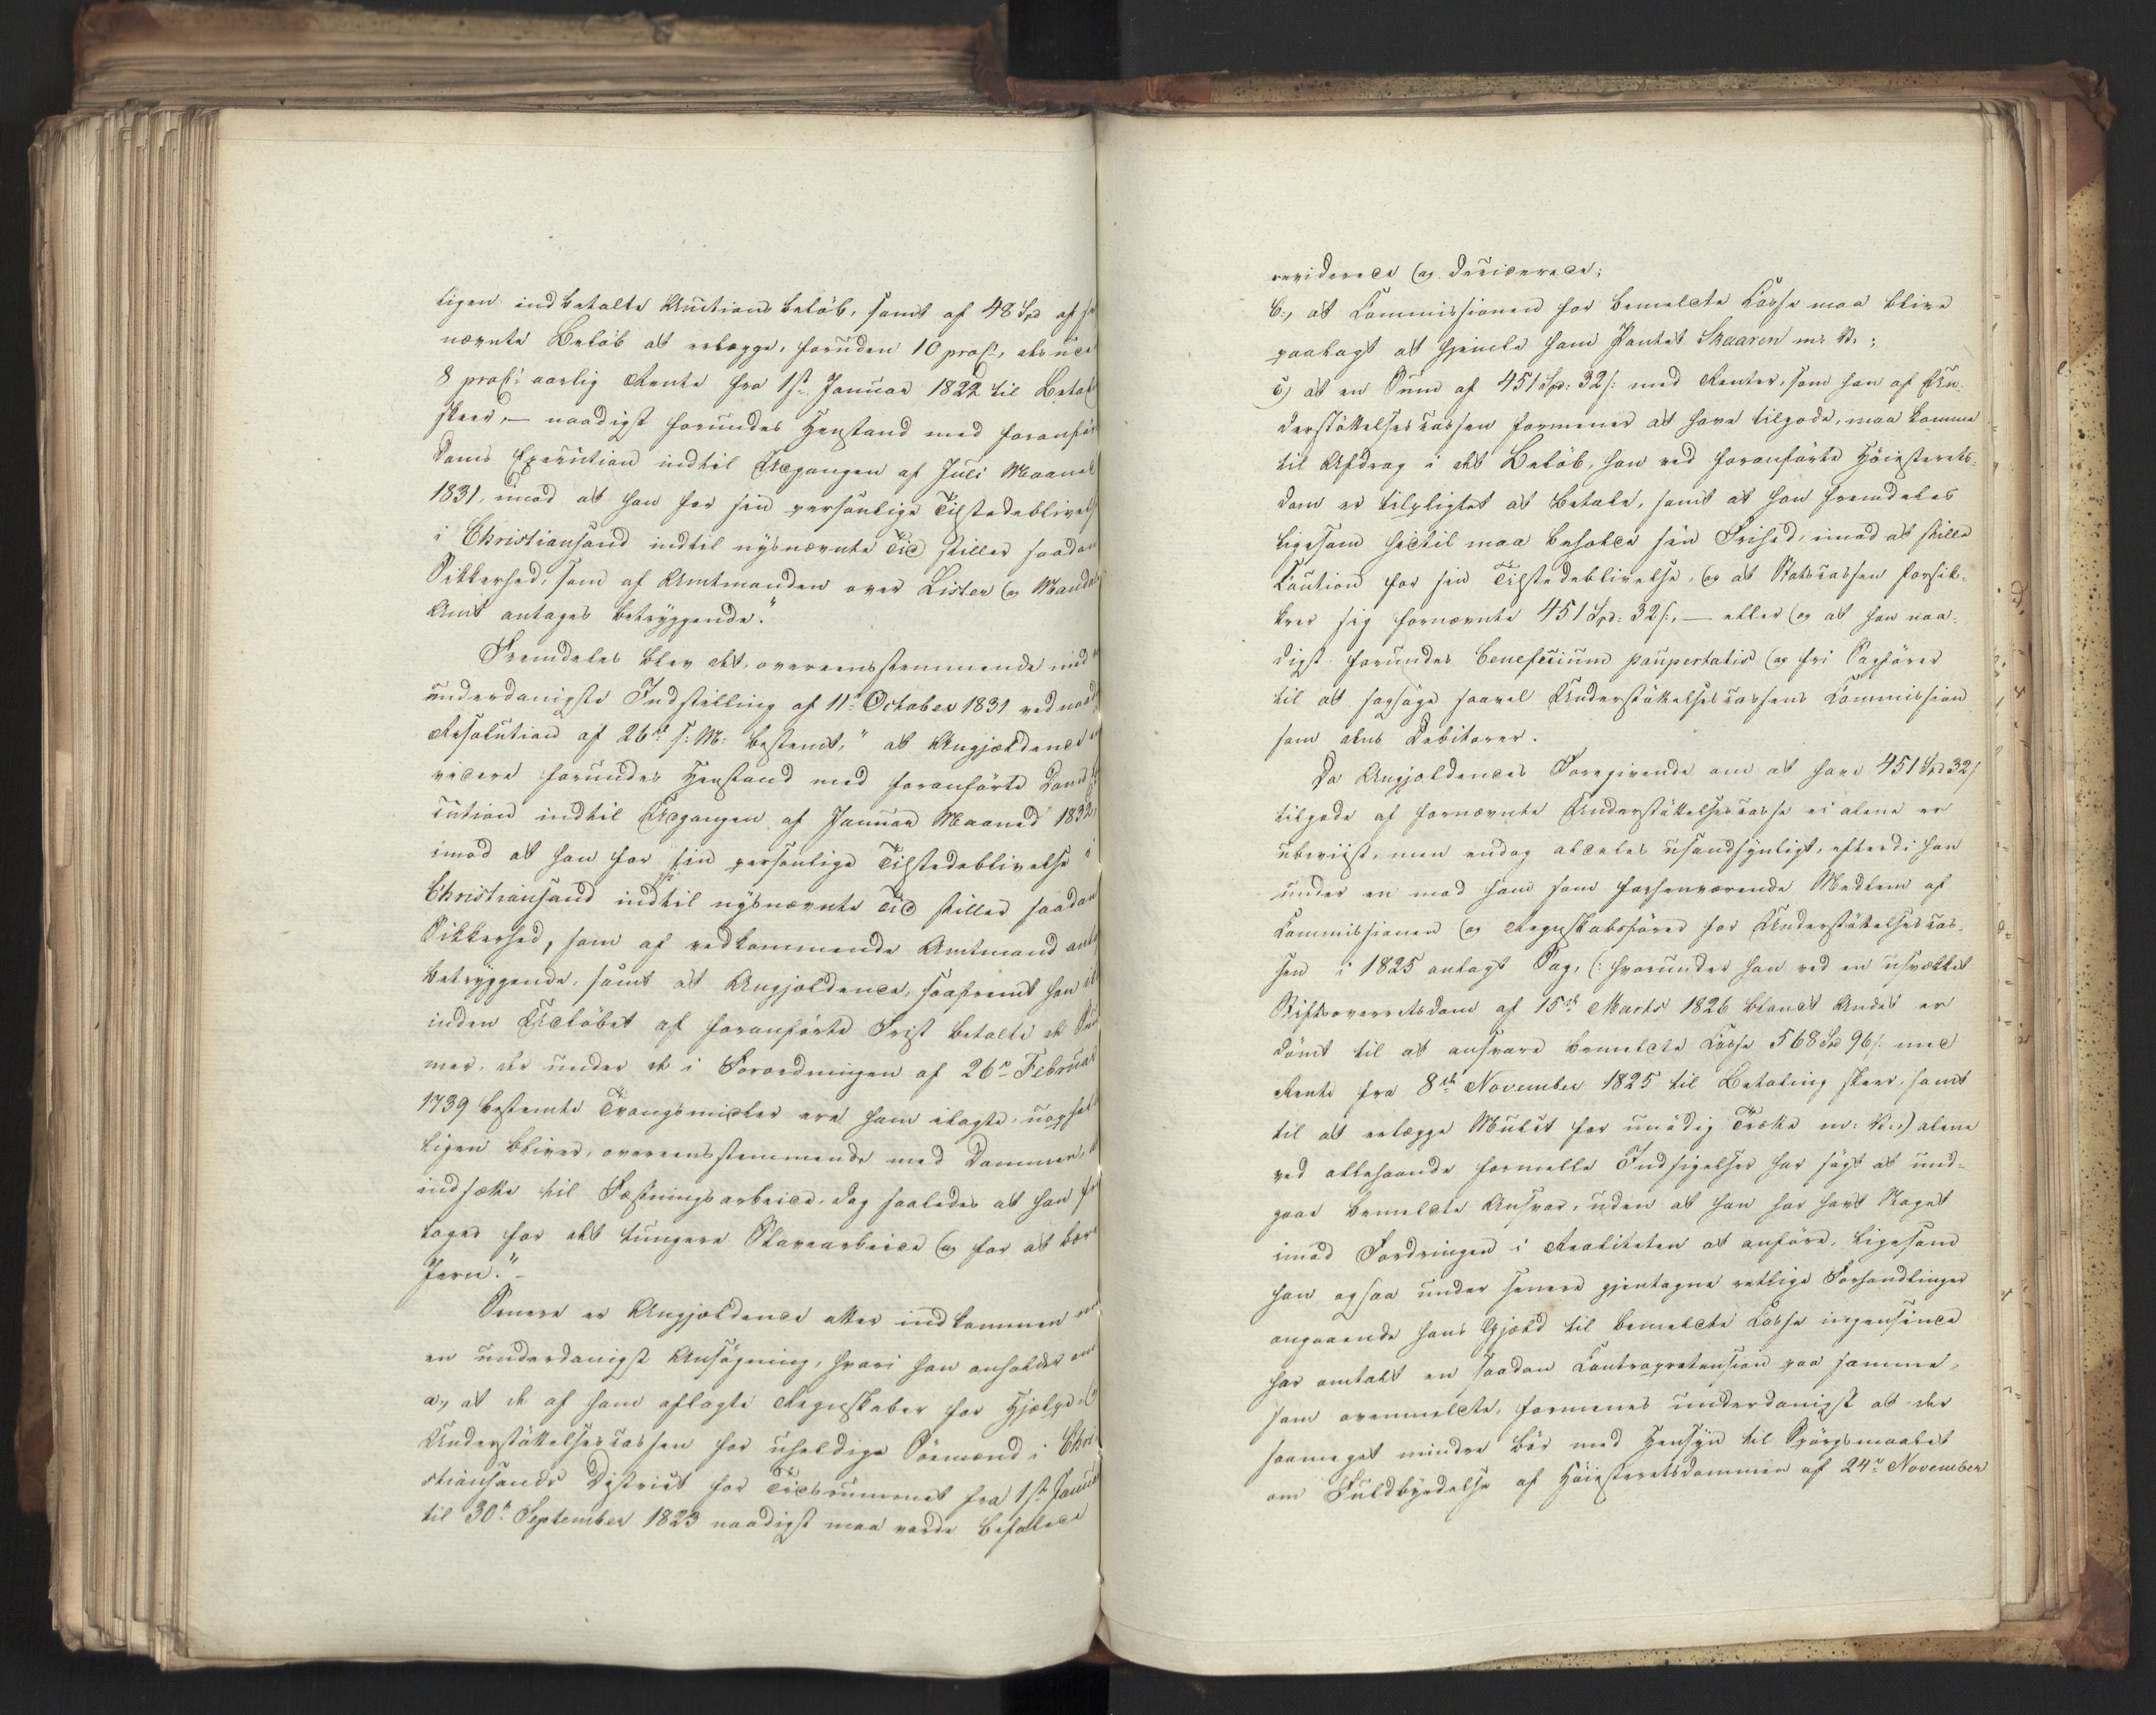 ligen indbetalte Auctionsbeløb, samt af 48 Spd af
nævnte Beløb at erlægge, foruden 10 proCt,
8 proCt aarlig Rente fra 1st Januar 1822 til Betal
skeer, — naadigst forundes Henstand med foranfør
Doms Execution indtil Udgangen af Juli Maaned
1831, imod at han for sin personlige Tilstedeblivels
i Christiansand indtil nysnævnte Tid stiller saadan
Sikkerhed, som af Amtmanden over Lister og Mandals
Amt antages betryggende."
Fremdeles blev det, overeensstemmende med
underdanigste Indstilling af 11te October 1831 ved naad
Resolution af 26de s: M: bestemt, "at Angjældende
videre forundes Henstand med foranførte Doms
cution indtil Udgangen af Januar Maaned 1832,
imod at han for sin personlige Tilstedeblivelse i
Christiansand indtil nysnævnte Tid stiller saadan
Sikkerhed, som af vedkommende Amtmand
betryggende, samt at Angjældende, saafremt han
inden Udløbet af foranførte Frist betalte de
mer, der under de i Forordningen af 26de Februar
1739 bestemte Tvangsmidler ere ham ilagte,
ligen bliver, overeensstemmende med Dommen, at
indsætte til Fæstningsarbeide, dog saaledes at han
tages for det tungere Slavearbeide og for at bære
Jern."—
Senere er Angjældende atter indkommen
en underdanigst Ansøgning, hvori han anholder om
a, at de af ham aflagte Regnskaber for Hjælpe
Understøttelsescassen for uheldige Sømænd i Chri
stiansands District for Tidsrummet fra 1st Januar
til 30te September 1823 naadigst maa vorde befalede
reviderede og deciderede;
b, at Commissionen for bemeldte Casse maa blive
paalagt at hjemle ham Pantet Skaaren m. V.;
c, at en Sum af 451 Spd: 32 s: med Renter, som han af Un-
derstøttelsescassen formener at have tilgode, maa komme
til Afdrag i det Beløb, han ved foranførte Høiesterets-
dom er tilpligtet at betale, samt at han fremdeles
ligesom hidtil maa beholde sin Frihed, imod at stille
Caution for sin Tilstedeblivelse, og at Statscassen forsik-
krer sig fornævnte 451 Spd: 32 s:, — eller og at han naa-
digst forundes beneficium paupertatis og fri Sagfører
til at sagsøge saavel Understøttelsescassens Commission
som dens Debitorer.
Da Angjældendes Foregivende om at have 451 Spd 32 s
tilgode af fornævnte Understøttelsescasse ei alene er
ubeviist, men endog aldeles usandsynligt, efterdi han
under en mod ham som forhenværende Medlem af
Commissionen og Regnskabsfører for Understøttelsescas-
sen i 1825 anlagt Sag, (: hvorunder han ved en usvækket
Stiftsoverretsdom af 15de Marts 1826 blandt Andet er
dømt til at ansvare bemeldte Casse 568 Spd 96 s: med
Rente fra 8de November 1825 til Betaling skeer, samt
til at erlægge Mulct for unødig Trætte m: V.:) alene
ved allehaande formelle Indsigelser har søgt at und-
gaae bemeldte Ansvar, uden at han har havt Noget
imod Fordringen i Realiteten at anføre, ligesom
han ogsaa under senere gjentagne retlige Forhandlinger
angaaende hans Gjæld til bemeldte Casse ingensinde
har omtalt en saadan Contraprætension paa samme,
som ovenmeldte, formenes underdanigst at der
saameget mindre bør med Hensyn til Spørgsmaalet
om Fuldbyrdelse af Høiesteretsdommen af 24de November